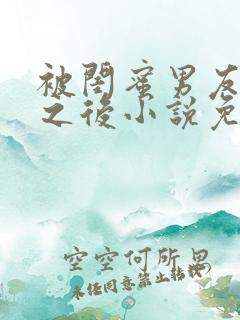 被闺蜜男友
之后小説免
空空何所思
未经同意禁止转载